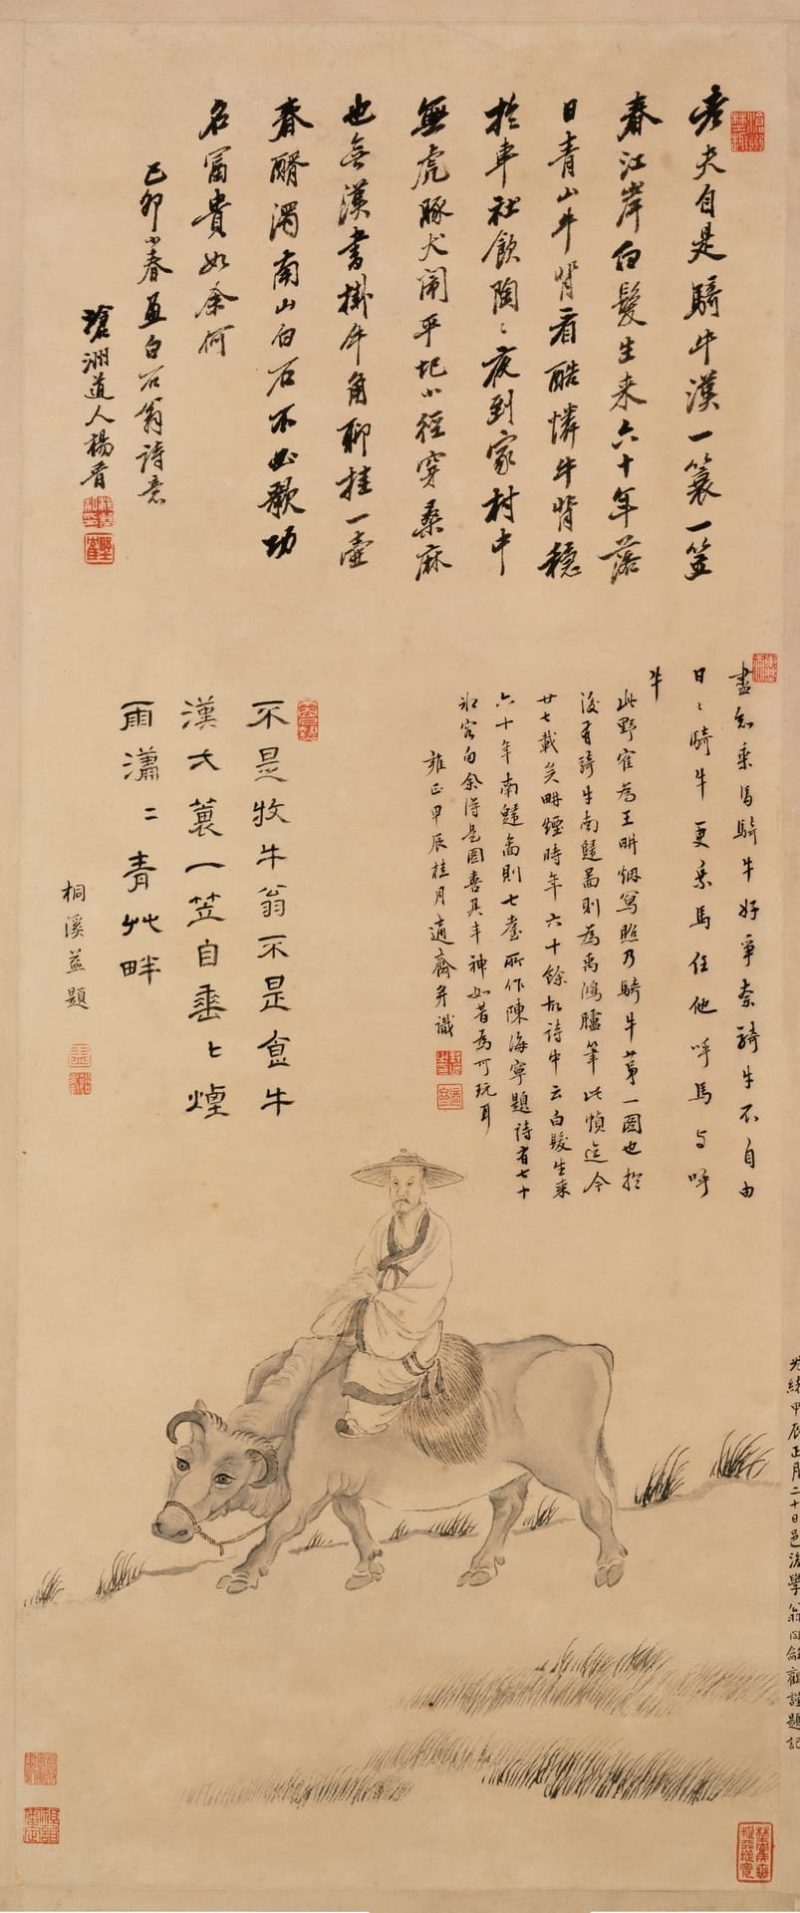 老夫自是騎牛漢一簑一笠
春江岸白髮生来六十年落
日青山牛背看酷憐牛背穩
於車社飲陶〻夜到家村中
無虎豚犬閙平圯小徑穿桑麻
也無漢書掛牛角聊挂一壺
春醑濁南山白石不必歌功
名富貴如余何
己卯小春畫白石翁詩意
瑲洲道人楊晉
盡知乘馬騎牛好爭奈騎牛不自由
日〻騎牛更乘馬任他呼馬与呼
牛
此野隺為王畊烟寫照乃騎牛第一圖也於
後有騎牛南鼞啚則為禹鴻臚筆此幀迄今
廿七載矣畊煙時年六十餘故詩中云白髮生来
六十年南鼞啚則七耋所作陳海寧題詩有七十
客句余得是圖喜其丰神如昔為可玩耳
雍正甲辰桂月適齋并識
不是牧牛翁不是食牛
漢大蓑一笠自垂〻煙
雨瀟〻青艸畔
桐溪益題
光緒甲辰正月二十日邑後學翁同龢觀謹題記